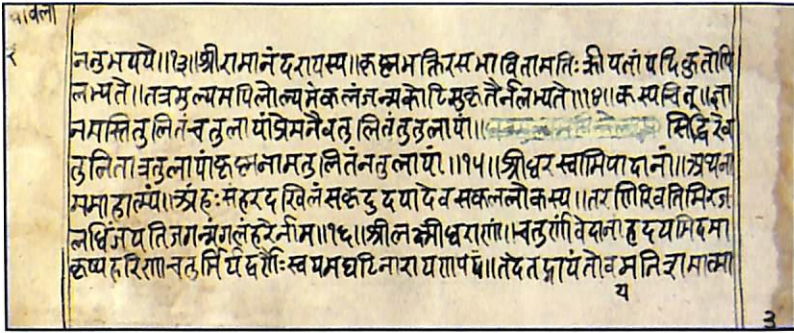 द्यावली
नतुमयये॥१३॥श्रीरामानंदरायस्य॥कृष्णभक्तिरसभावितामतिःक्रीयतांयदिकुतोपि
लभ्यते॥तत्रमुल्यमपिलौल्यमेकलंजन्मकोटिसुकृतैर्नलभ्यते॥१४॥कस्यचित्॥ज्ञा
नमस्तितुलितंचतुलायांप्रेमनैवतुलितंतुतुलायां॥ सिद्धिरेव
तुलितात्रतुलायांकृष्णनामतुलितंनतुलायां॥१५॥श्रीधरस्वामिपादानां॥अथना
ममाहात्म्यं॥अंहःसंहरदखिलंसकृदुदयादेवसकललोकस्य॥तरणिरिवतिमिरज
लधिंजयतिजगन्मंगलंहरेर्नाम॥१६॥श्रीलक्ष्मीधराणां॥चतुर्णांवेदानांहृदयमिदमा
कृष्यहरिणाचतुर्भिर्यद्वर्णैःस्वयमघटिनारायणपदं॥तदेतद्गायंतोवमनिशमात्मा
य
३